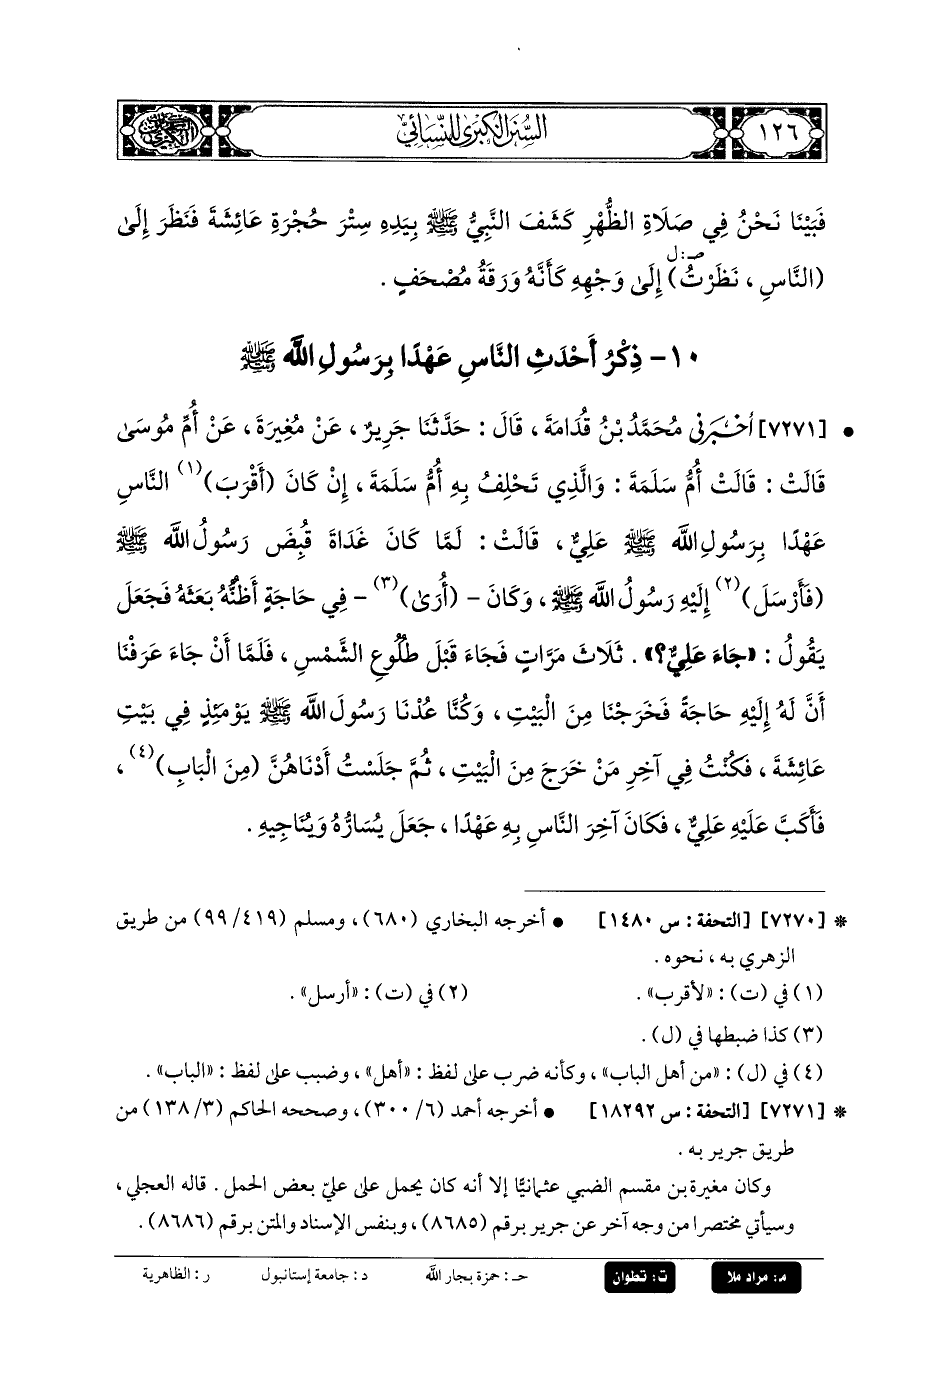 ١٢٦
السنن الكبرى للنسائي
فَبَيْنَا نَحْنُ فِي صَلَاةِ الظُّهْرِ كَشَفَ النَّبِيُّ ﷺ بِيَدِهِ سِتْرَ حُجْرَةِ عَائِشَةَ فَنَظَرَ إِلَىٰ
صـ: ل
(النَّاسِ ، نَظَرْتُ) إِلَىٰ وَجْهِهِ كَأَنَّهُ وَرَقَةُ مُصْحَفٍ .
١٠- ذِكْرُ أَحْدَثِ النَّاسِ عَهْدًا بِرَسُولِ اللَّه ﷺ
• [٧٢٧١] أَخْبَرَنِي مُحَمَّدُ بْنُ قُدَامَةَ ، قَالَ : حَدَّثَنَا جَرِيرٌ ، عَنْ مُغِيرَةَ ، عَنْ أُمِّ مُوسَىٰ
قَالَتْ : قَالَتْ أُمُّ سَلَمَةَ : وَالَّذِي تَحْلِفُ بِهِ أُمُّ سَلَمَةَ ، إِنْ كَانَ (أَقْرَبَ)(١) النَّاسِ
عَهْدًا بِرَسُولِ اللَّه ﷺ عَلِيٌّ ، قَالَتْ : لَمَّا كَانَ غَدَاةَ قُبِضَ رَسُولُ اللَّه ﷺ
(فَأَرْسَلَ)(٢) إِلَيْهِ رَسُولُ اللَّه ﷺ ، وَكَانَ - (أُرَىٰ)(٣) - فِي حَاجَةٍ أَظُنُّهُ بَعَثَهُ فَجَعَلَ
يَقُولُ : «جَاءَ عَلِيٌّ؟» . ثَلَاثَ مَرَّاتٍ فَجَاءَ قَبْلَ طُلُوعِ الشَّمْسِ ، فَلَمَّا أَنْ جَاءَ عَرَفْنَا
أَنَّ لَهُ إِلَيْهِ حَاجَةً فَخَرَجْنَا مِنَ الْبَيْتِ ، وَكُنَّا عُدْنَا رَسُولَ اللَّه ﷺ يَوْمَئِذٍ فِي بَيْتِ
عَائِشَةَ ، فَكُنْتُ فِي آخِرِ مَنْ خَرَجَ مِنَ الْبَيْتِ ، ثُمَّ جَلَسْتُ أَدْنَاهُنَّ (مِنَ الْبَابِ)(٤) ،
فَأَكَبَّ عَلَيْهِ عَلِيٌّ ، فَكَانَ آخِرَ النَّاسِ بِهِ عَهْدًا ، جَعَلَ يُسَارُّهُ وَيُنَاجِيهِ .
* [٧٢٧٠] [التحفة : س ١٤٨٠] • أخرجه البخاري (٦٨٠) ، ومسلم (٤١٩/ ٩٩) من طريق
الزهري به ، نحوه .
(١) في (ت) : «لأقرب» . (٢) في (ت) : «أرسل» .
(٣) كذا ضبطها في (ل) .
(٤) في (ل) : «من أهل الباب» ، وكأنه ضرب على لفظ : «أهل» ، وضبب على لفظ : «الباب» .
* [٧٢٧١] [التحفة : س ١٨٢٩٢] • أخرجه أحمد (٦/ ٣٠٠) ، وصححه الحاكم (٣/ ١٣٨) من
طريق جرير به .
وكان مغيرة بن مقسم الضبي عثمانيًّا إلا أنه كان يحمل على عليّ بعض الحمل . قاله العجلي ،
وسيأتي مختصرا من وجه آخر عن جرير برقم (٨٦٨٥) ، وبنفس الإسناد والمتن برقم (٨٦٨٦) .
م : مراد ملا ت : تطوان حـ : حمزة بجار اللَّه د : جامعة إستانبول ر : الظاهرية